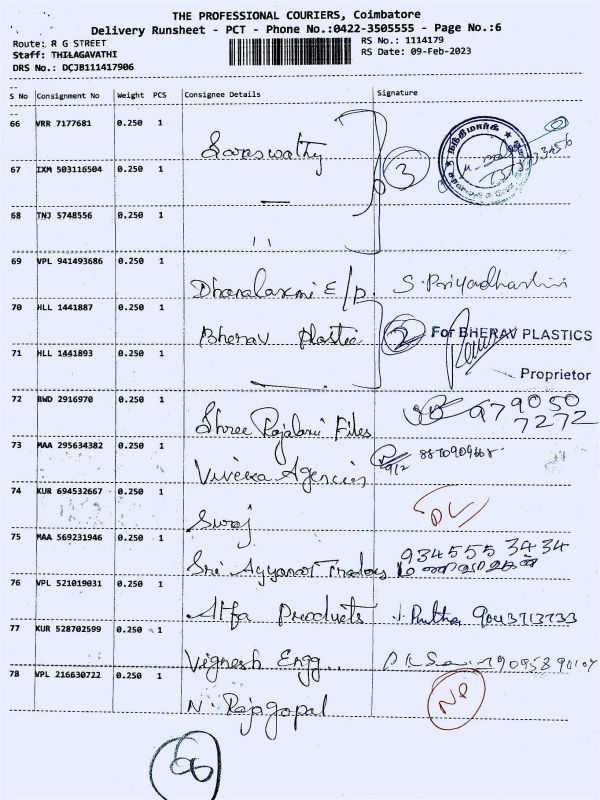 THE PROFESSIONAL COURIERS, Coimbatore
Delivery Runsheet - PCT - Phone No.:0422-3505555 - Page No.:6
Route: R G STREET
RS No.: 1114179
Staff: THILAGAVATHI
RS Date: 09-Feb-2023
DRS No.: DCJB111417906
S No Consignment No Weight PCS Consignee Details Signature
66 VRR 7177681 0.250 1 Saraswathy 3
67 IXM 503116504 0.250 1 —
68 TNJ 5748556 0.250 1 ''
69 VPL 941493686 0.250 1 Dhanalaxmi E/p. S. Priyadharshini
70 HLL 1441887 0.250 1 Bherav Plastic 2 For BHERAV PLASTICS
71 HLL 1441893 0.250 1 — Proprietor
72 BWD 2916970 0.250 1 Shree Rajalaxmi Files 979050
7272
73 MAA 295634382 0.250 1 Viveka Agencies 9/2
74 KUR 694532667 0.250 1 Suraj DL
75 MAA 569231946 0.250 1 Sri Ayyanar Traders 934555 3434
76 VPL 521019031 0.250 1 Alfa Products 9043713733
77 KUR 528702599 0.250 1 Vignesh Engg..
78 VPL 216630722 0.250 1 N. Rajagopal NP
66